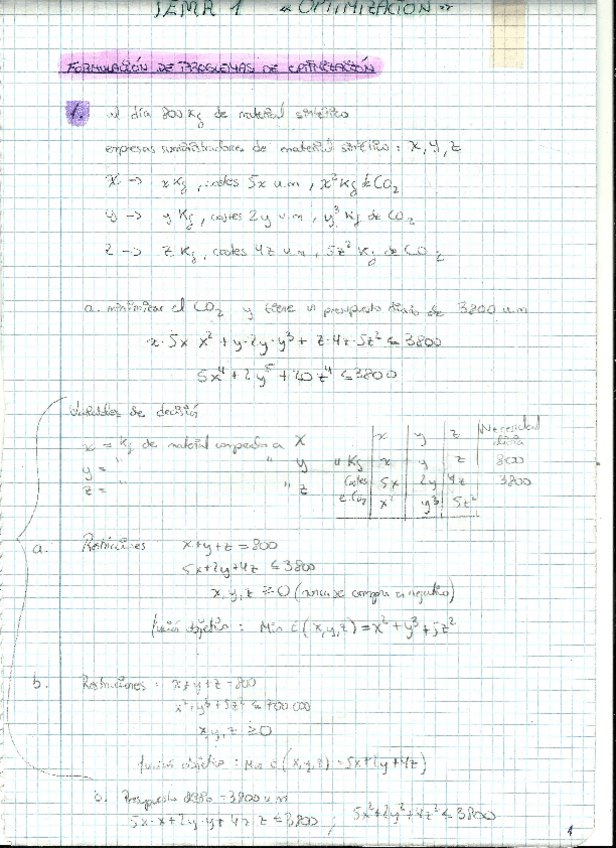 TEMA 1 "OPTIMIZACIÓN"
FORMULACIÓN DE PROBLEMAS DE OPTIMIZACIÓN
1. al día 800 Kg de material sintético
empresas suministradoras de material sintético: X, Y, Z
X -> x Kg, costes 5x u.m, x² Kg de CO₂
Y -> y Kg, costes 2y u.m, y³ Kg de CO₂
Z -> z Kg, costes 4z u.m, 5z² Kg de CO₂
a. minimizar el CO₂ y tiene un presupuesto diario de 3800 u.m
x·5x x² + y·2y·y³ + z·4z·5z² ≤ 3800
5x⁴ + 2y⁵ + 20z⁴ ≤ 3800
Variables de decisión
x = Kg de material comprados a X
y = " " Y
z = " " Z
x y z Necesidad diaria
Kg x y z 800
Costes 5x 2y 4z 3800
CO₂ x² y³ 5z²
a. Restricciones x+y+z = 800
5x+2y+4z ≤ 3800
x, y, z ≥ 0 (nunca se compra en negativo)
función objetivo: Min C(x,y,z) = x² + y³ + 5z²
b. Restricciones: x+y+z = 800
x²+y³+5z² ≤ 700.000
x, y, z ≥ 0
función objetivo: Min C(x,y,z) = 5x+2y+4z
Presupuesto = 3800 u.m
5x·x+2y·y+4z·z ≤ 3800 ; 5x²+2y²+4z² ≤ 3800
1